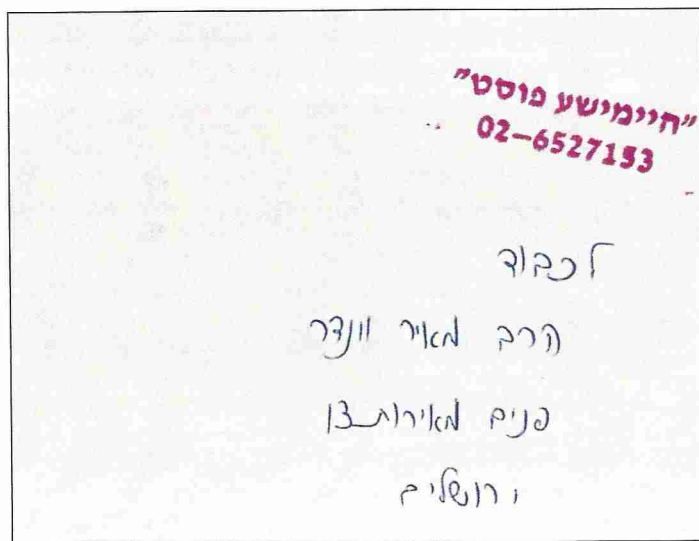 "היימישע פוסט"
02-6527153
לכבוד
הרב מאיר וונדר
פנים מאירות 13
ירושלים